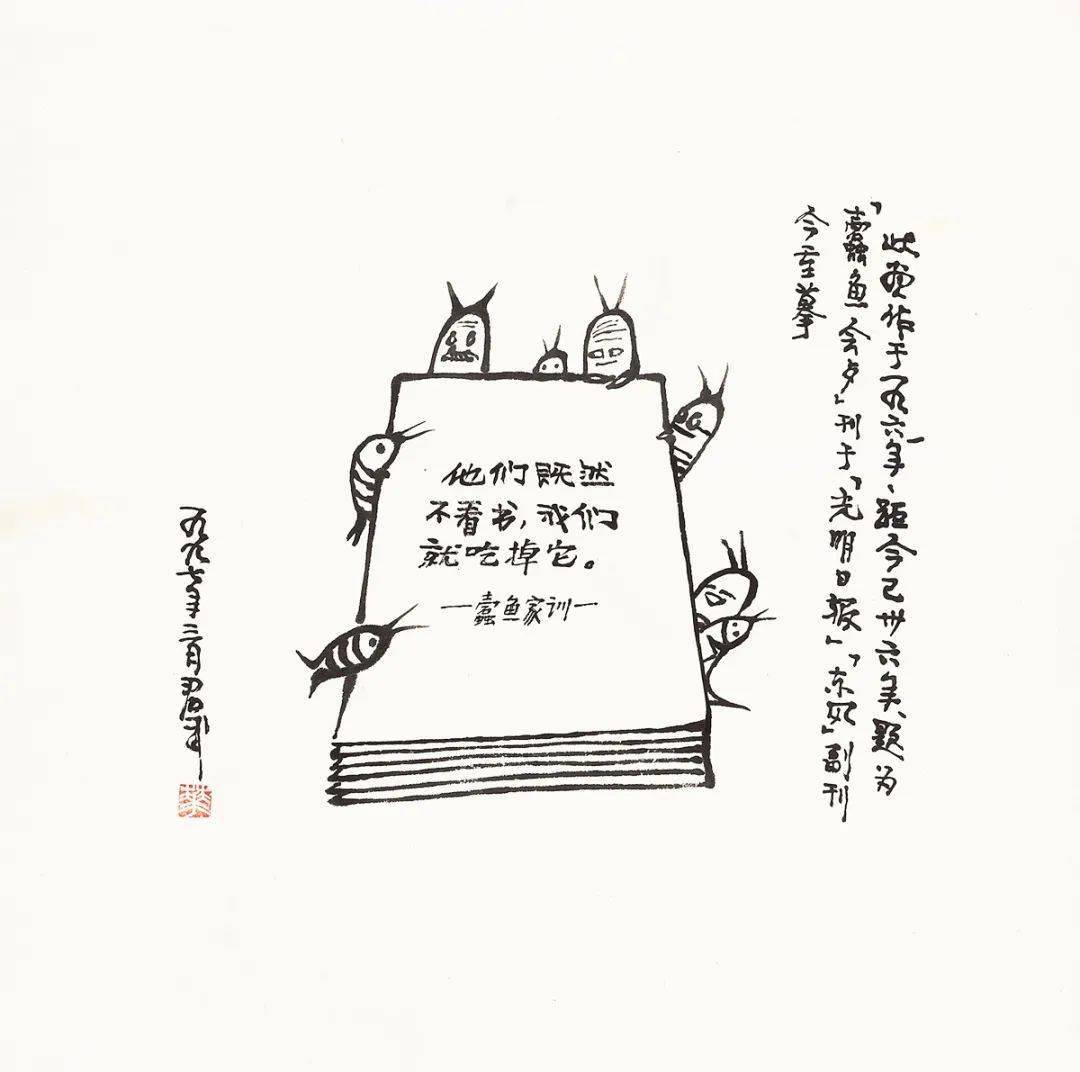 此画作于一九六一年、距今已卅六年、题为
「蠹鱼会歺」刊于「光明日报」「东风」副刊
今重摹
他们既然
不看书,我们
就吃掉它。
—蠹鱼家训—
一九九七年三月君武
华